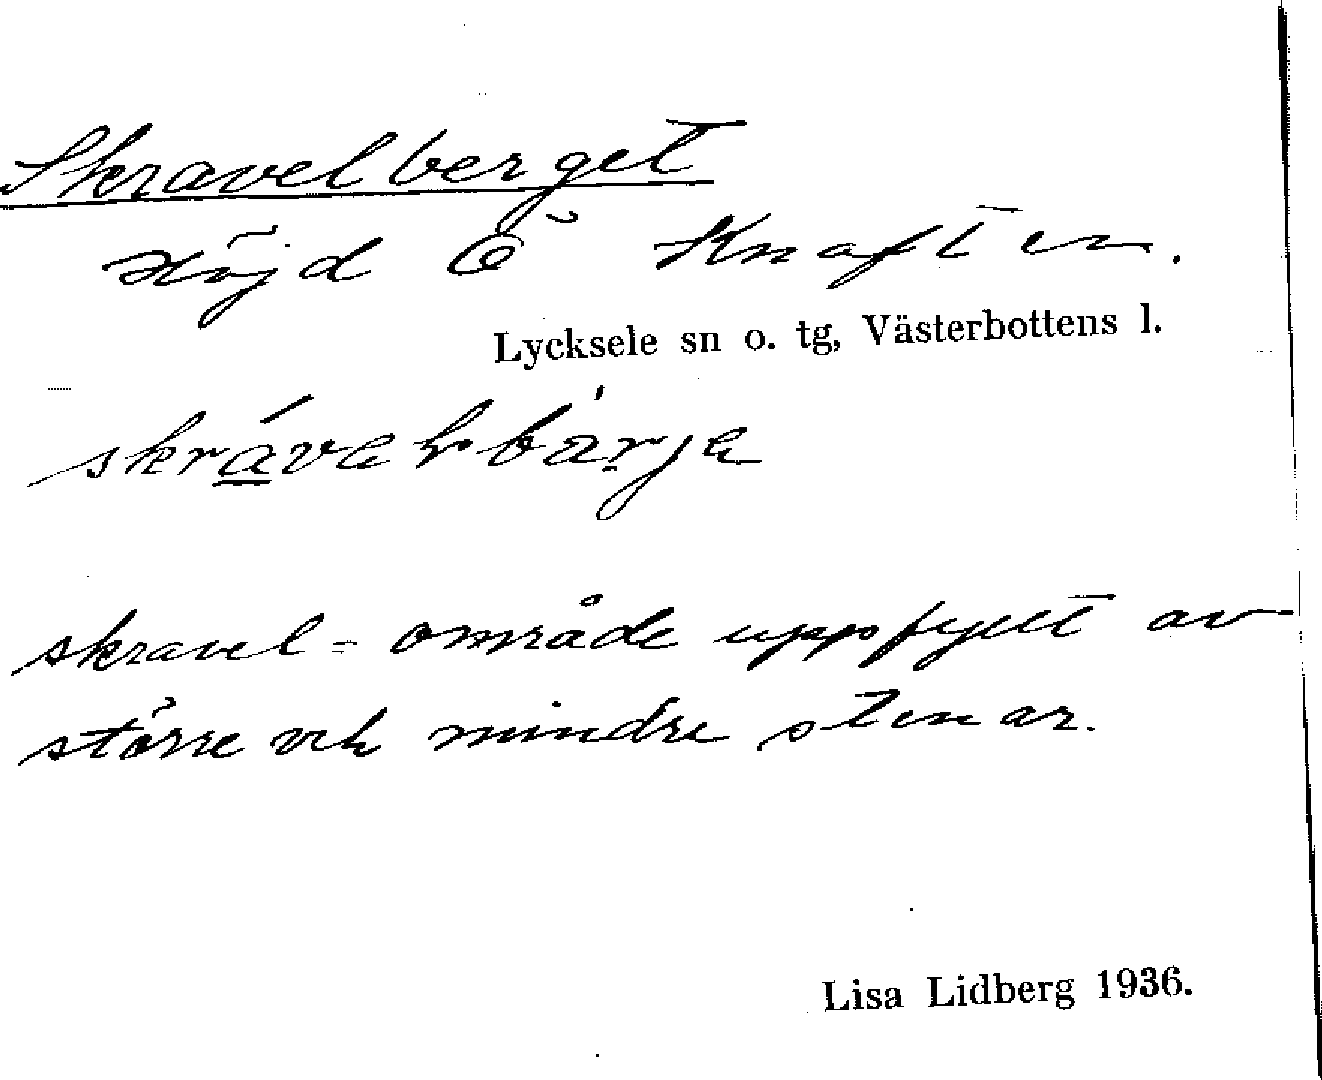 Skravelberget
Höjd Ö Knaften.
Lycksele sn o. tg, Västerbottens l.
skravel = område uppfyllt av
större och mindre stenar.
Lisa Lidberg 1936.